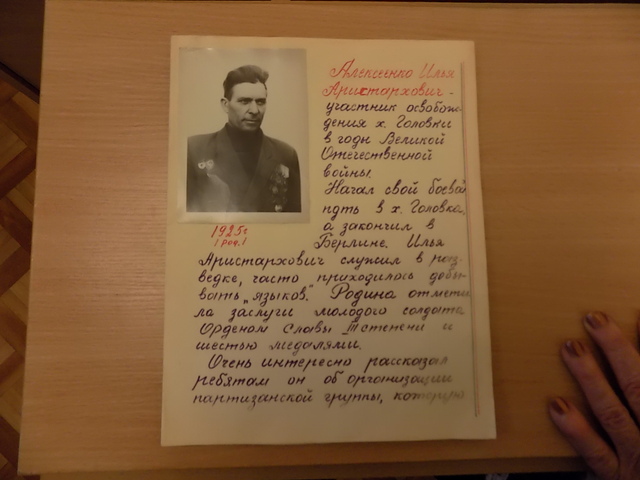 Алексеенко Илья
Аристархович -
участник освобож-
дения х. Головки
в годы Великой
Отечественной
войны.
Начал свой боевой
путь в х. Головка,
а закончил в
Берлине. Илья
1925г
(род.)
Аристархович служил в раз-
ведке, часто приходилось добы-
вать „языков". Родина отмети
ла заслуги молодого солдата
Орденом Славы III степени и
шестью медалями.
Очень интересно рассказал
ребятам он об организации
партизанской группы, которую